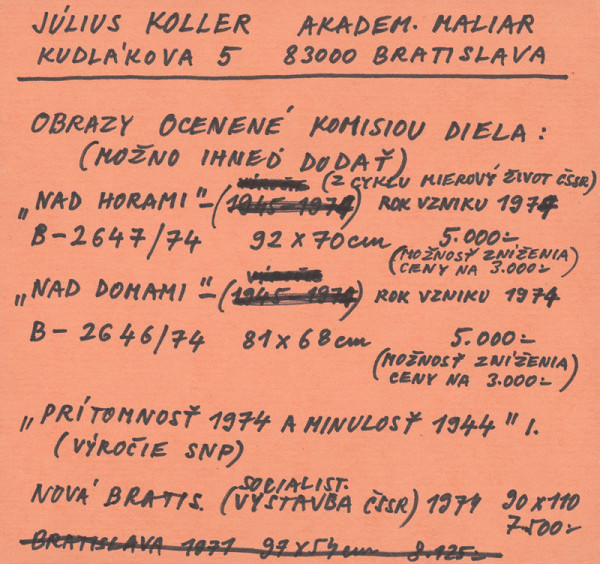 JÚLIUS KOLLER AKADEM. MALIAR
KUDLÁKOVA 5 83000 BRATISLAVA
OBRAZY OCENENÉ KOMISIOU DIELA:
(MOŽNO IHNEĎ DODAŤ)
(Z CYKLU MIEROVÝ ŽIVOT ČSSR)
„NAD HORAMI"-(1945-1974) ROK VZNIKU 1974
B-2647/74 92 x 70 cm 5.000.-
(MOŽNOSŤ ZNÍŽENIA
CENY NA 3.000.-)
„NAD DOMAMI"-(1945-1974) ROK VZNIKU 1974
B- 2646/74 81 x 68 cm 5.000.-
(MOŽNOSŤ ZNÍŽENIA
CENY NA 3.000.-)
„PRÍTOMNOSŤ 1974 A MINULOSŤ 1944" I.
(VÝROČIE SNP)
SOCIALIST.
NOVÁ BRATIS. (VÝSTAVBA ČSSR) 1971 90 x 110
7.500.-
BRATISLAVA 1971 97 x 54 cm 8.125.-